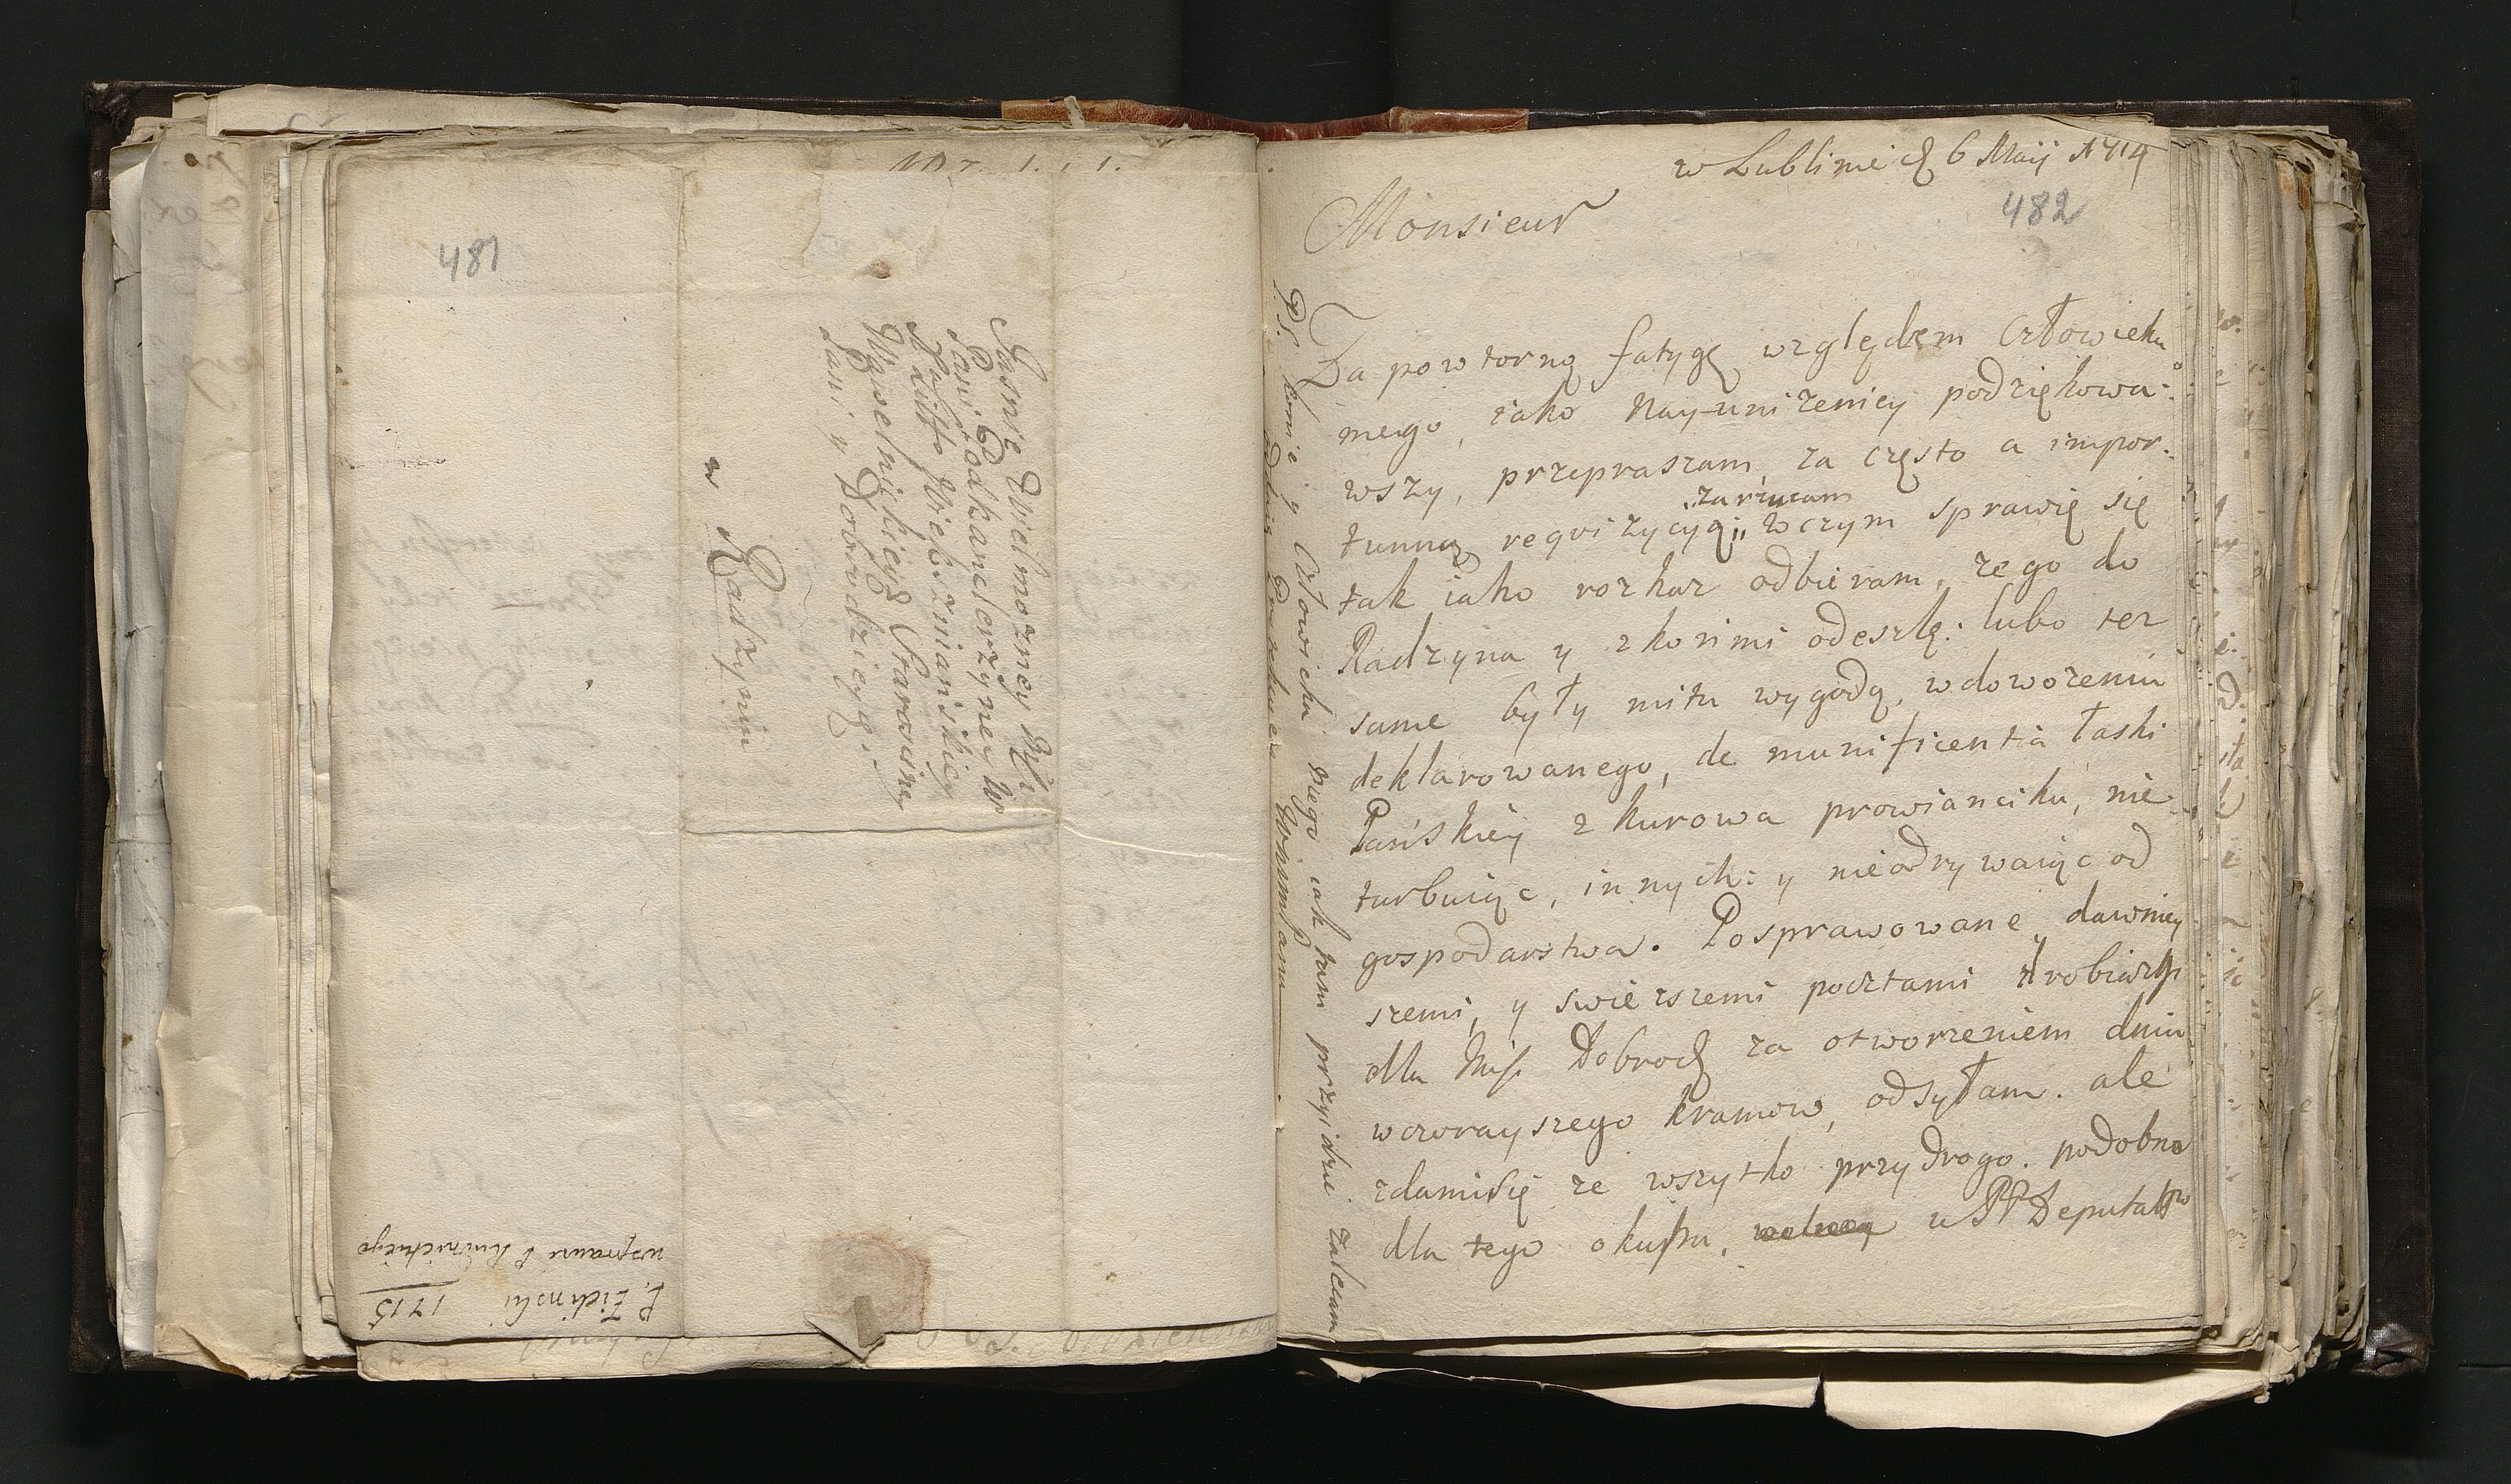 481
Jasnie Wielmozney Mci
Pani Podkanclerzyney
Litto Wielolzmianskiey
Wąwelnickiey Starosciney
Pani y Dobrodzieyce.
w Radzyniu
P. Zielinski 1715
w sprawie P.
w Lublinie d 6 Maij 1714
482
Monsieur
Za powtorną fatygę względem człowieka
mego, iako nayunizeniey podziękowa-
wszy, przepraszam za często a impor-
zarzucam
tunną reqvizycyą; w czym sprawię się
tak iako rozkaz odbieram, ze go do
Radzyna y z konmi odeszlę: lubo tez
same były mi tu wygodą, w dowozeniu
deklarowanego, de munificentia łaski
Pańskiey z kurowa prowianciku, nie
turbuiąc, innych: y nieodrywaiąc od
gospodarstwa. Posprawowane dawniey
szemi, y swieszszemi pocztami
dla Dobrod za otworzeniem dnia
wczorayszego kramow, odsyłam. ale
zdamisię ze wszytko przydrogo. podobno
dla tego okupu, u PP Deputatow
PS. konie y Człowieka mego iak tam przyidzie zalecam